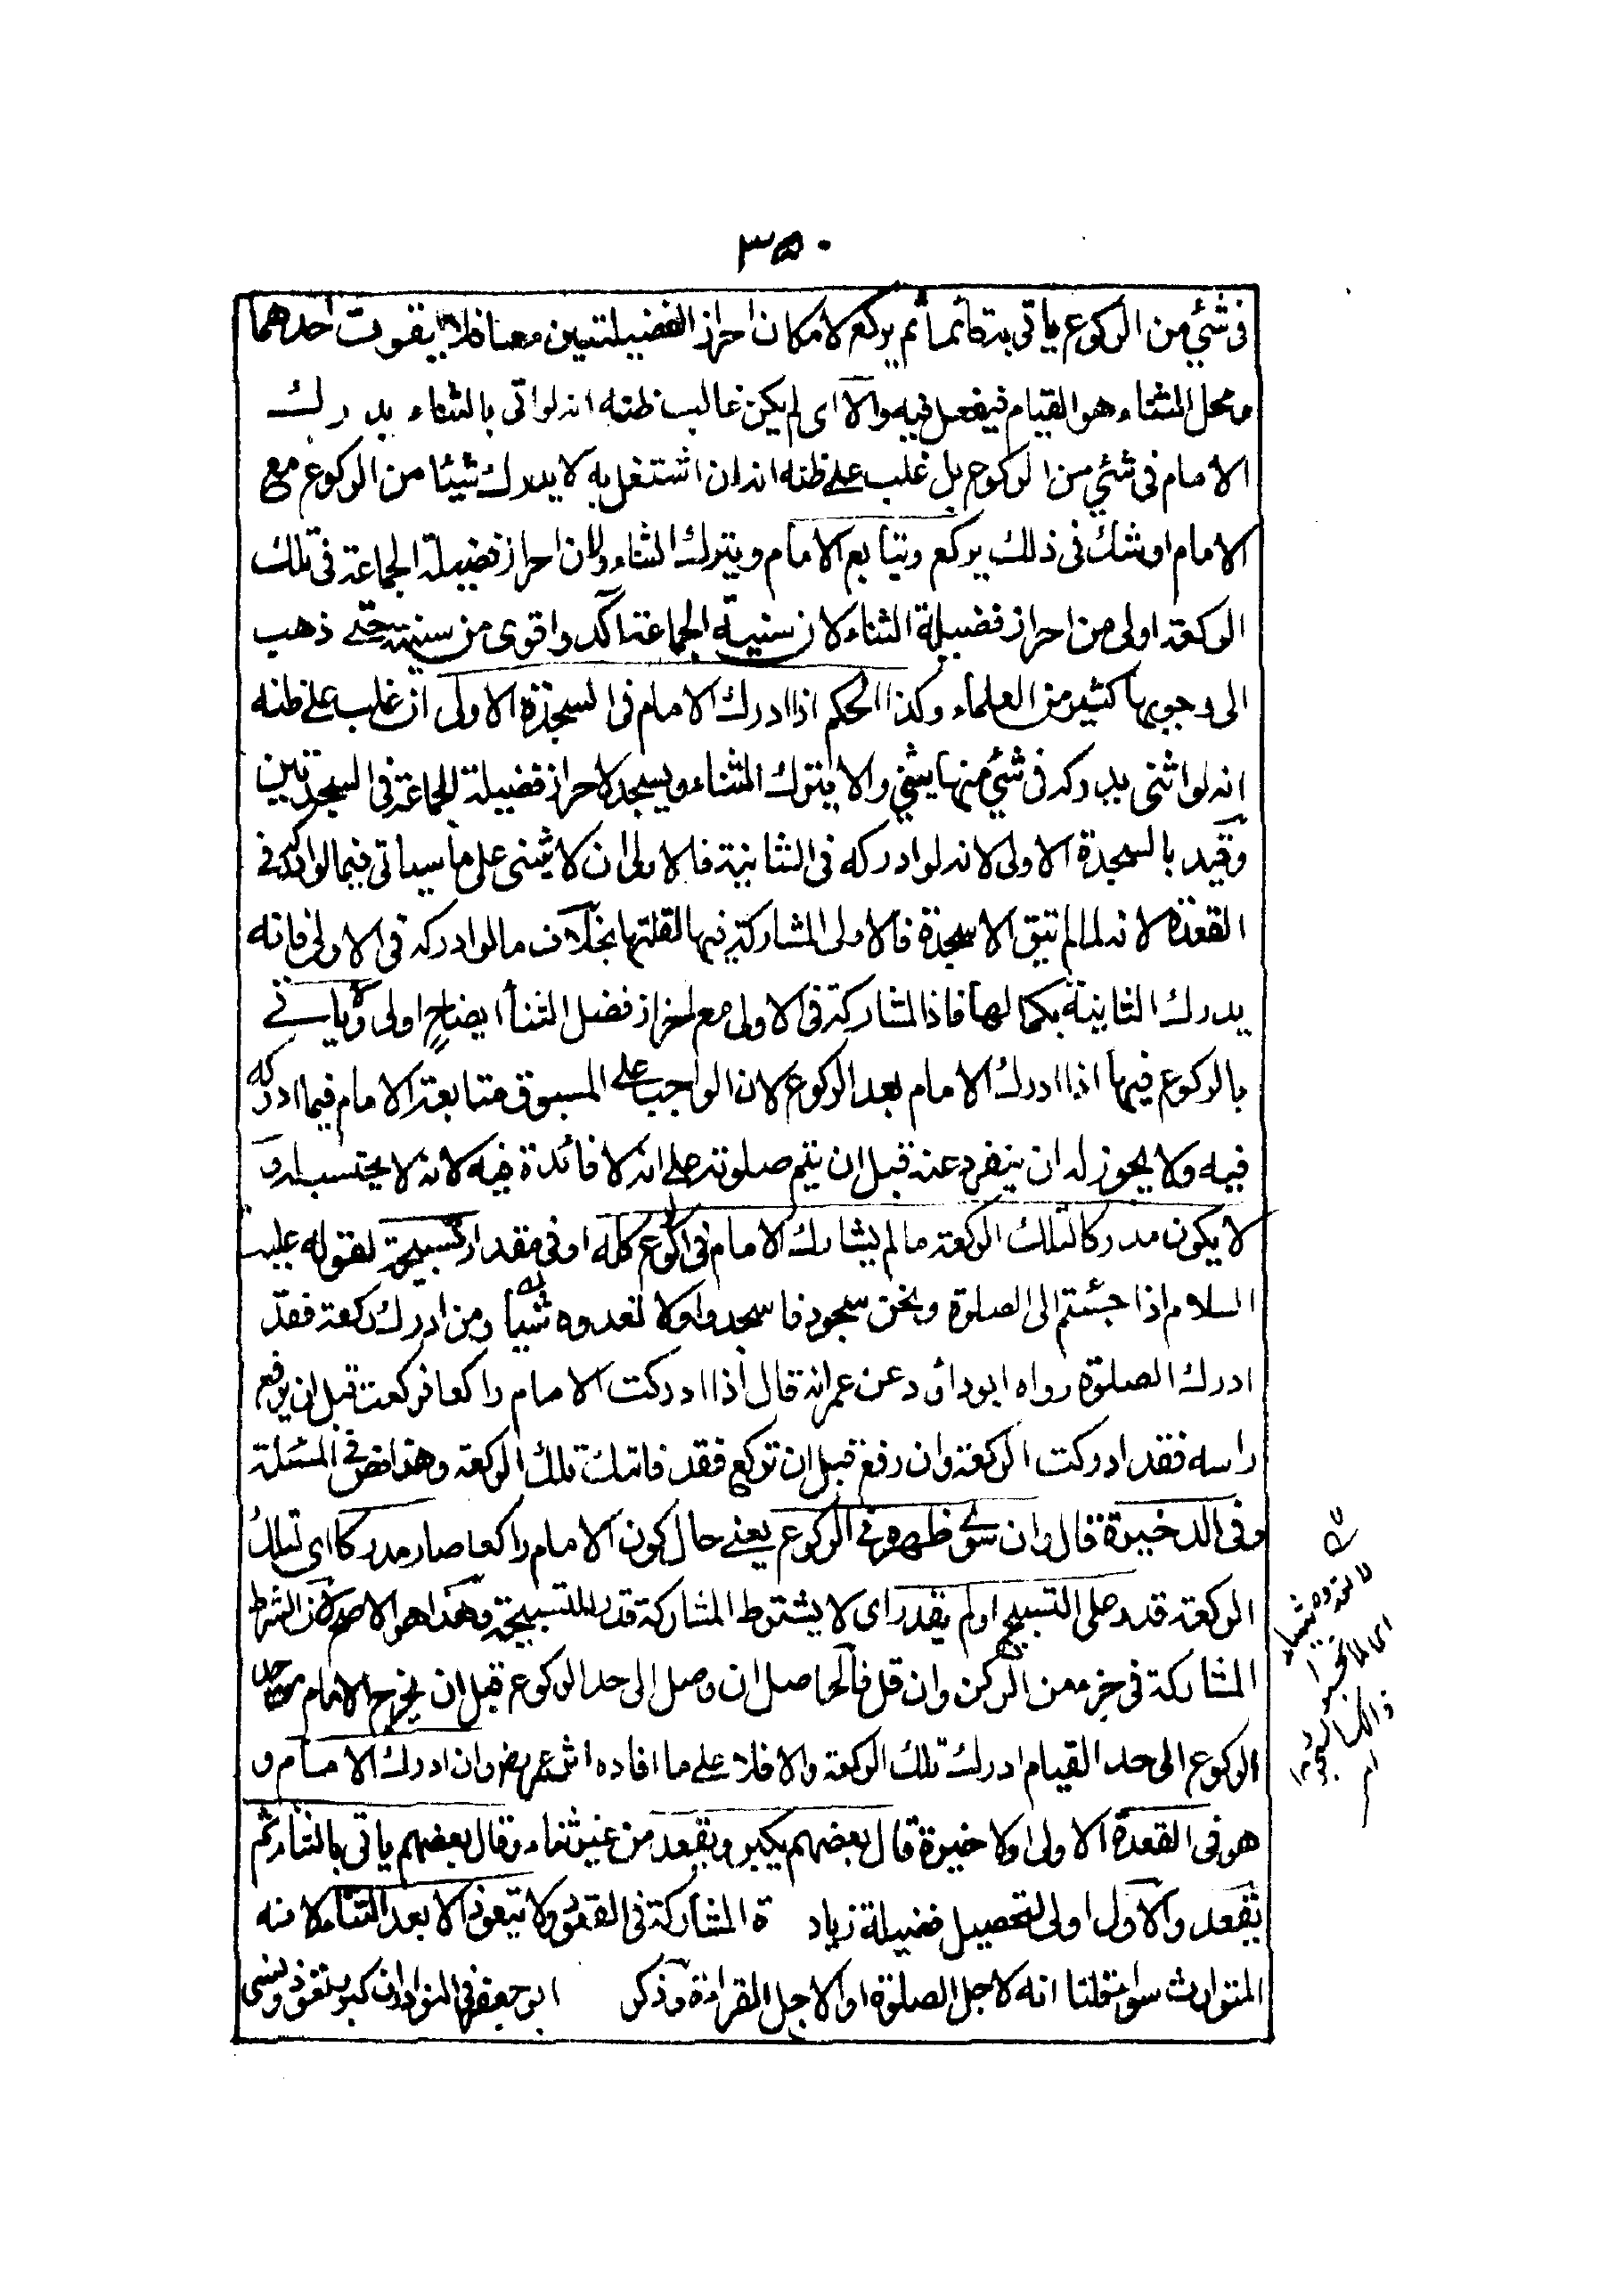 ٣٥٠
فى شئي من الركوع ياتى به قائما ثم يركع لامكان احراز الفضيلتين معا فلا يفوت احدهما
ومحل الثناء هو القيام فيفعل فيه والا اى لم يكن غالب ظنه انه لو اتى بالثناء يدرك
الامام فى شئي من الركوع بل غلب على ظنه انه ان اشتغل به لا يدرك شيئا من الركوع مع
الامام او شك فى ذلك يركع ويتابع الامام ويترك الثناء لان احراز فضيلة الجماعة فى تلك
الركعة اولى من احراز فضيلة الثناء لان سنية الجماعة اكد واقوى من سنيته حتى ذهب
الى وجوبها كثير من العلماء وكذا الحكم اذا ادرك الامام فى السجدة الاولى ان غلب على ظنه
انه لو اثنى يدركه فى شئي منها يثني والا يترك الثناء ويسجد لاحراز فضيلة الجماعة فى السجدتين
وقيد بالسجدة الاولى لانه لو ادركه فى الثانية فالاولى ان لا يثنى على ما سياتى فيما لو ادركه فى
القعدة لانه لما لم تبق الا سجدة فالاولى المشاركة فيها لقلتها بخلاف ما لو ادركه فى الاولى فانه
يدرك الثانية بكمالها فاذا المشاركة فى الاولى مع احراز فضل الثنأ ايضا ح اولى ولا ياتى
بالركوع فيها اذا ادرك الامام بعد الركوع لان الواجب على المسبوق متابعة الامام فيما ادركه
فيه ولا يجوز له ان ينفرد عنه قبل ان يتم صلوته على انه لا فائدة فيه لانه لا يحتسب له و
لا يكون مدركا لتلك الركعة ما لم يشارك الامام فى الركوع كله او فى مقدار تسبيحة لقوله عليه
السلام اذا جئتم الى الصلوة ونحن سجود فاسجدوا ولا تعدوه شيأ ومن ادرك ركعة فقد
ادرك الصلوة رواه ابوداؤد وعن عمر انه قال اذا ادركت الامام راكعا فركعت قبل ان يرفع
راسه فقد ادركت الركعة وان رفع قبل ان تركع فقد فاتتك تلك الركعة وهذا نص فى المسئلة
وفى الذخيرة قال وان سوى ظهره فى الركوع يعنى حال كون الامام راكعا صار مدركا اى لتلك
الركعة قدر على التسبيح او لم يقدر اى لا يشترط المشاركة قدر التسبيحة وهذا هو الاصح لان الشرط
المشاركة فى جزء من الركن وان قل فالحاصل ان وصل الى حد الركوع قبل ان يخرج الامام من حد
الركوع الى حد القيام ادرك تلك الركعة والا فلا على ما افاده اثر عمر رض وان ادرك الامام و
هو فى القعدة الاولى او الاخيرة قال بعضهم يكبر ويقعد من غير ثناء وقال بعضهم ياتى بالثناء ثم
يقعد والاول اولى لتحصيل فضيلة زيادة المشاركة فى القعود ولا يتعوذ الا بعد الثناء لانه
المتوارث سواء قلنا انه لاجل الصلوة او لاجل القراءة وذكر ابو جعفر فى النوادر ان كبر وتعوذ ونسى
لا تعدوه شيأ